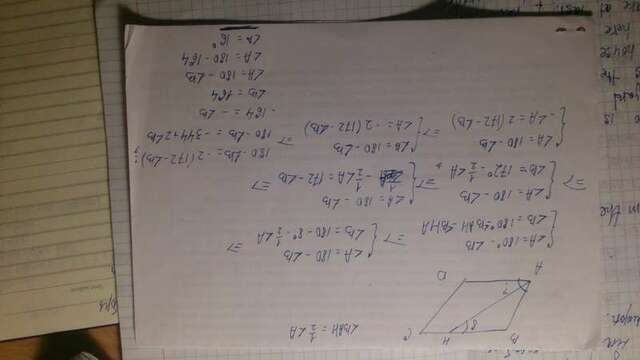 ∠BAH = 1/2 ∠A
A
B
C
D
H
8°
{ ∠A = 180° - ∠B
∠B = 180° - ∠BAH - ∠BHA
⇒ { ∠A = 180 - ∠B
∠B = 180 - 8° - 1/2 ∠A
⇒
⇒ { ∠A = 180 - ∠B
∠B = 172° - 1/2 ∠A
⇒ { ∠A = 180 - ∠B
- 1/2 ∠A = 172 - ∠B
⇒
{ ∠A = 180 - ∠B
- ∠A = 2(172 - ∠B)
⇒ { ∠A = 180 - ∠B
∠A = - 2(172 - ∠B)
⇒
180 - ∠B = - 2(172 - ∠B)
180 - ∠B = - 344 + 2∠B
- 164 = - ∠B
∠B = 164
∠A = 180 - ∠B
∠A = 180 - 164
∠A = 16°